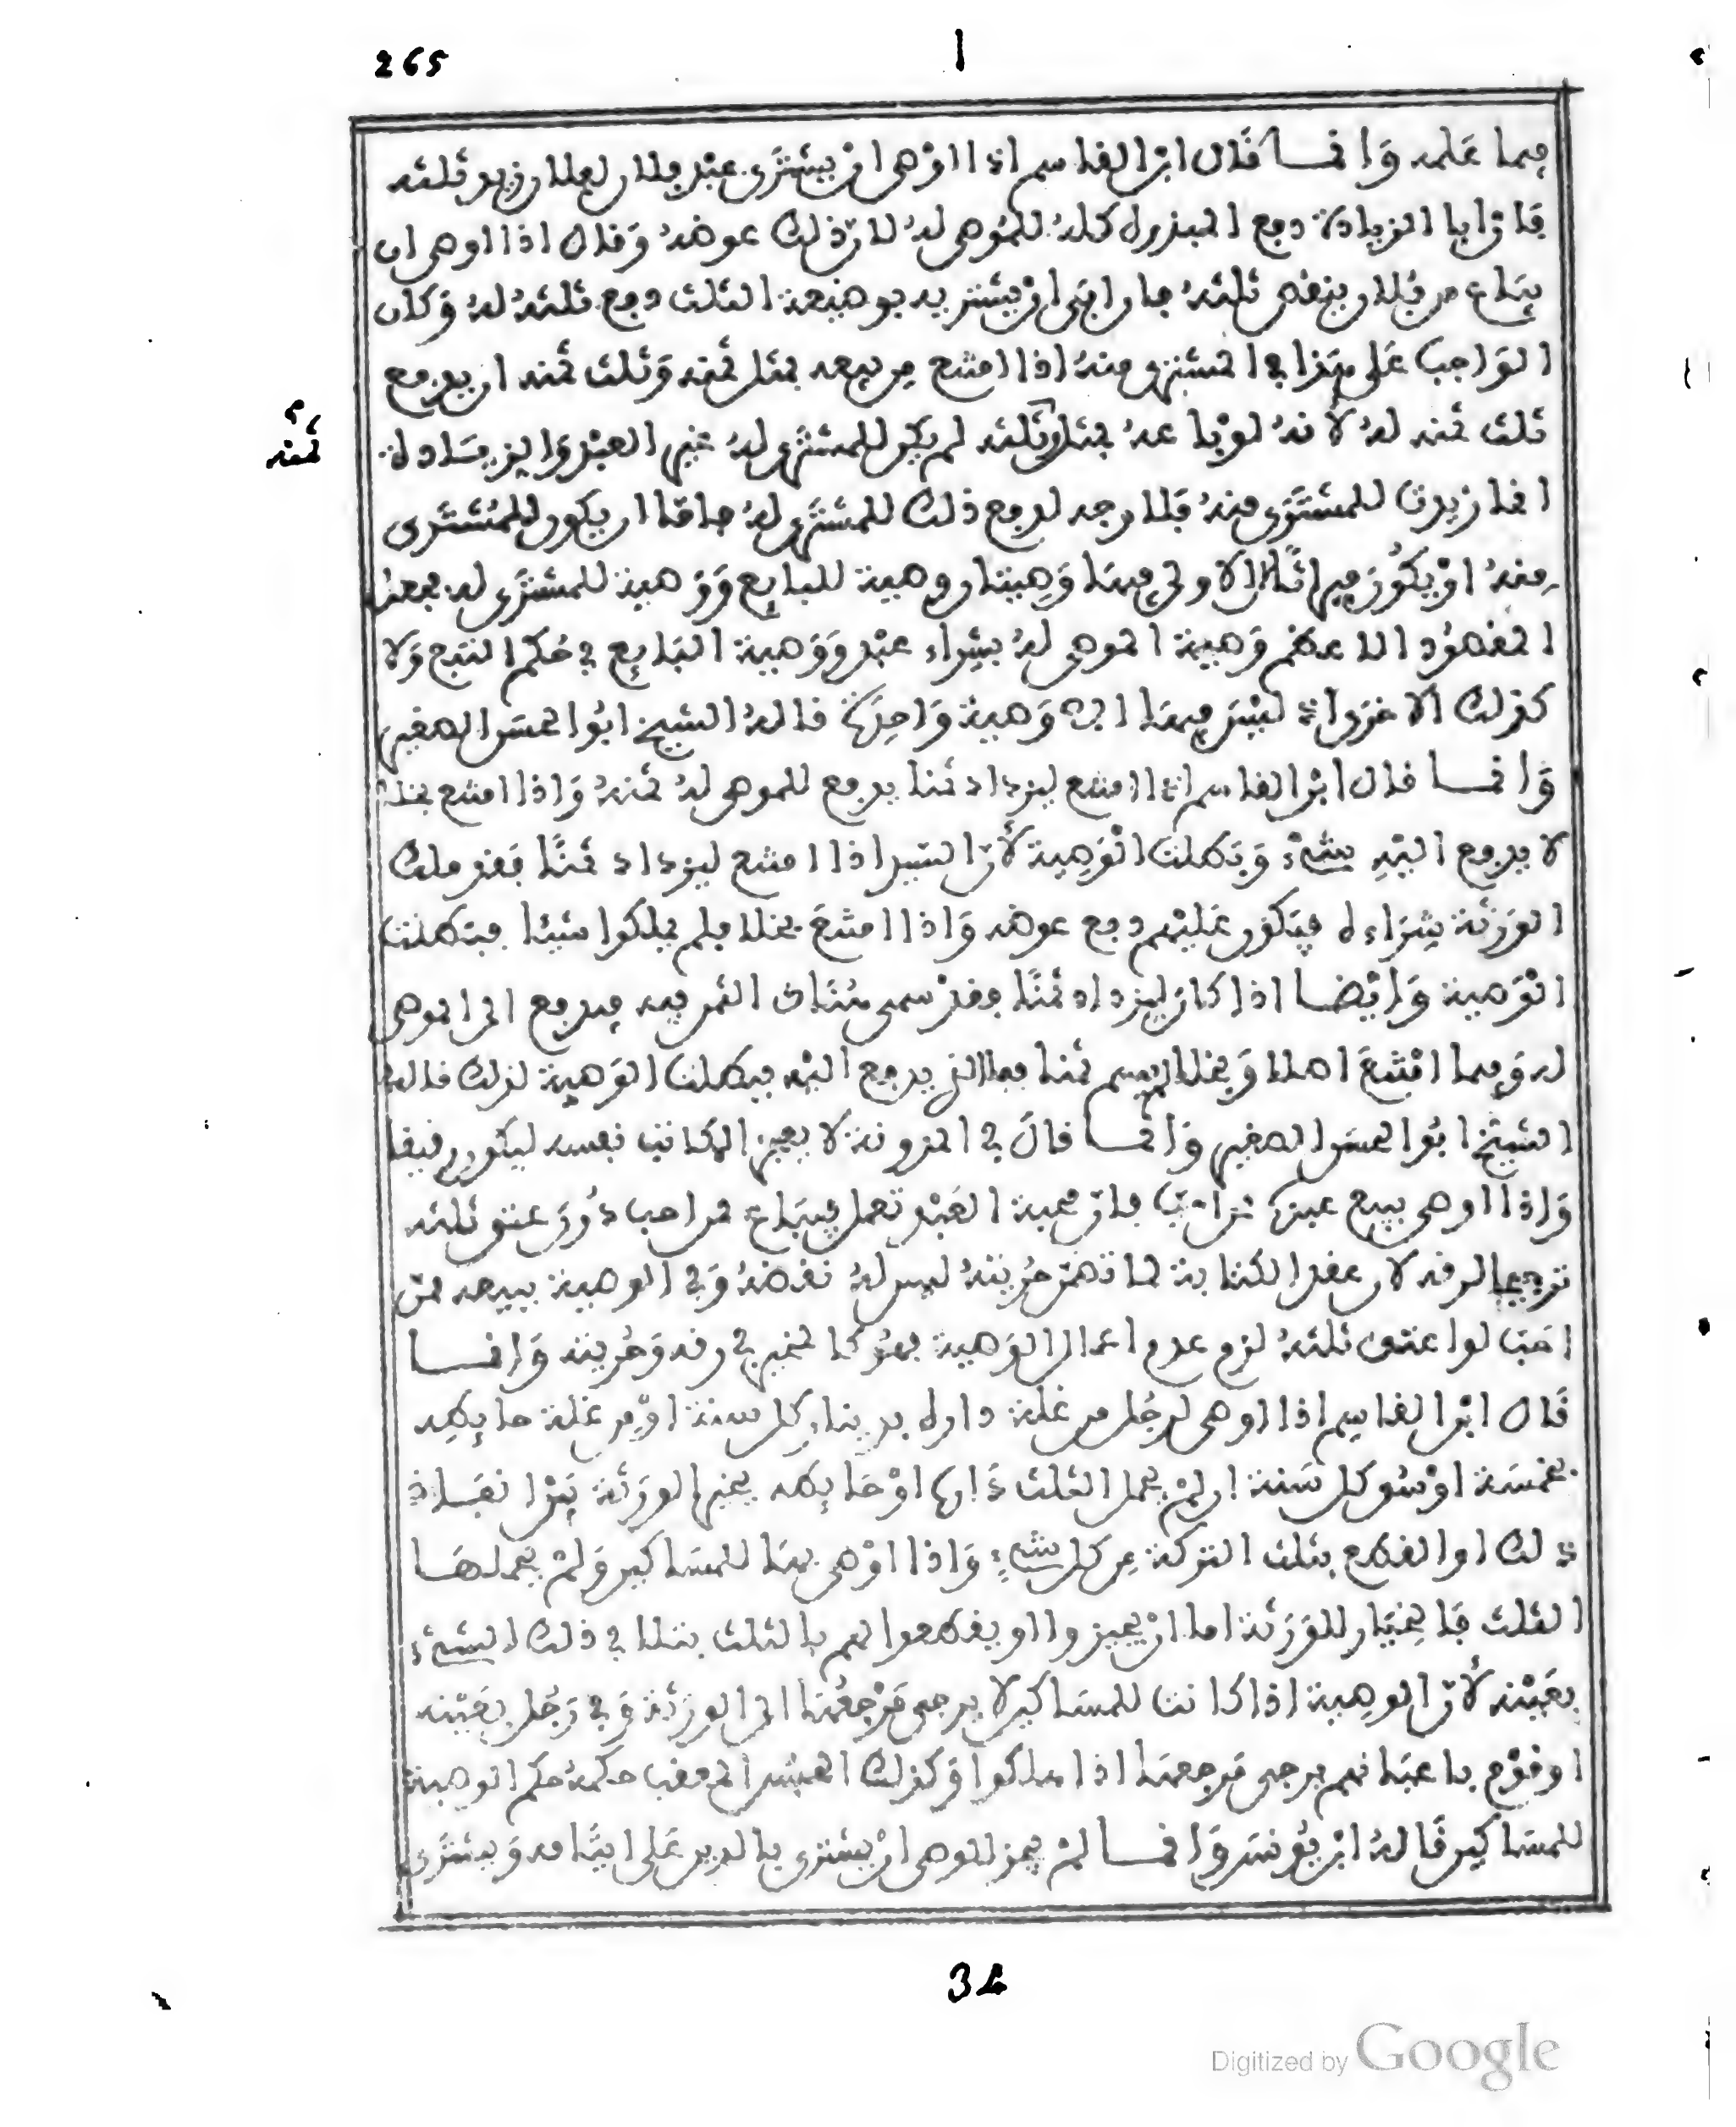 265
فيما علمه وانما قال ابن القاسم اذا اوصى ان يشترى عبد فلان لفلان زيد ثلثه
فان ابا الزيادة دفع المبذول كله للموصى له لان ذلك عوضه وقال اذا اوصى ان
يباع من فلان بنقص ثلثه فان ابى ان يشتريه بوضيعة الثلث دفع ثلثه له وكان
الواجب على هذا في المشترى منه اذا امتنع من بيعه بمثل ثمنه وثلث ثمنه ان يدفع
ثلث ثمنه له لانه لو باعه بمثل وثلثه لم يكن للمشترى له غير العبد والزيادة
ثمنه
انما زيدت للمشترى منه فلا وجه لدفع ذلك للمشترى له فاما ان يكون للمشترى
منه او يكون ميراثا لان الاولى فيها وصيتان وصية للبايع ووصية للمشترى له فجعل
المقصود الاعظم وصية الموصى له بشراء عبد ووصية البايع في حكم التبع ولا
كذلك الاخرى اذ ليس فيها الا وصية واحدة قاله الشيخ ابو الحسن الصغير
وانما قال ابن القاسم اذا امتنع ليزداد ثمنا يدفع للموصى له ثمنه واذا امتنع بخلا
لا يدفع اليه شيء وبطلت الوصية لان السيد اذا امتنع ليزداد ثمنا فقد ملك
الورثة شراءه فيكون عليهم دفع عوضه واذا امتنع بخلا فلم يملكوا شيئا فبطلت
الوصية وايضا اذا كان ليزداد ثمنا فقد سمى هناك الثمن فيه فيدفع الى الموصى
له وفيما امتنع اصلا وبخلا لم يسم ثمنا فما الذي يدفع اليه فبطلت الوصية لذلك قاله
الشيخ ابو الحسن الصغير وانما قال في المدونة لا يعجز المكاتب نفسه ليكون رقيقا
واذا اوصى ببيع عبده ممن احب فان محبة العبد تعمل فيباع ممن احب دون عتق ثلثه
ترجيحا لرقه لان عقد الكتابة لما تضمن حريته ليس له نقضه وفي الوصية ببيعه ممن
احب لو اعتق ثلثه لزم عدم اعمال الوصية فهو كالمخير في رقه وحريته وانما
قال ابن القاسم اذا اوصى لرجل من غلة داره بدينار كل سنة او من غلة حايطه
بخمسة اوسق كل سنة ان لم يحمل الثلث داره او حايطه يخير الورثة بين انفاذ
ذلك او القطع بثلث التركة من كل شيء واذا اوصى بها للمساكين ولم يحملها
الثلث فالخيار للورثة اما ان يجيزوا او يقطعوا لهم بالثلث بتلا في ذلك الشيء
بعينه لان الوصية اذا كانت للمساكين لا يرجى مرجعها الى الورثة وفي رجل بعينه
او قوم باعيانهم يرجى مرجعها اذا هلكوا وكذلك الحبس المعقب حكمه حكم الوصية
للمساكين قاله ابن يونس وانما لم يجز للوصي ان يشترى بالدين على ايتامه ويشترى
34
Digitized by Google